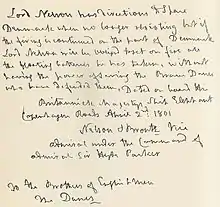 Lord Nelson has directions to spare
Denmark when no longer resisting but if
the firing is continued on the part of Denmark
Lord Nelson will be obliged to set on fire all
the floating batteries he has taken, without
having the power of saving the Brave Danes
who have defended them. Dated on board the
Britannick Majestys Ship Elephant
Copenhagen Roads April 2nd: 1801
Nelson & Bronte Vice
Admiral under the Command of
Admiral Sir Hyde Parker
To the Brothers of Englishmen
The Danes